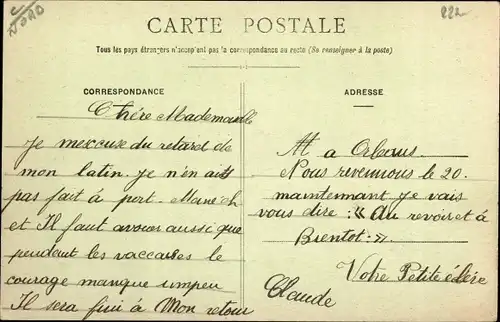 C
NORD
222
CARTE POSTALE
Tous les pays étrangers n'acceptent pas la correspondance au recto (Se renseigner à la poste)
CORRESPONDANCE
Chère Mademoiselle
Je mexcuse du retard de
mon latin. Je n'en ait
pas fait à port-Mane'ch
et Il faut avouer aussi que
pendant les vaccances le
courage manque umpeu
Il sera fini à Mon retour
ADRESSE
a Orleans.
Nous revennons le 20.
maintennant Je vais
vous dire : « Au revoir et à
Bientot. »
Votre Petite élève
Claude